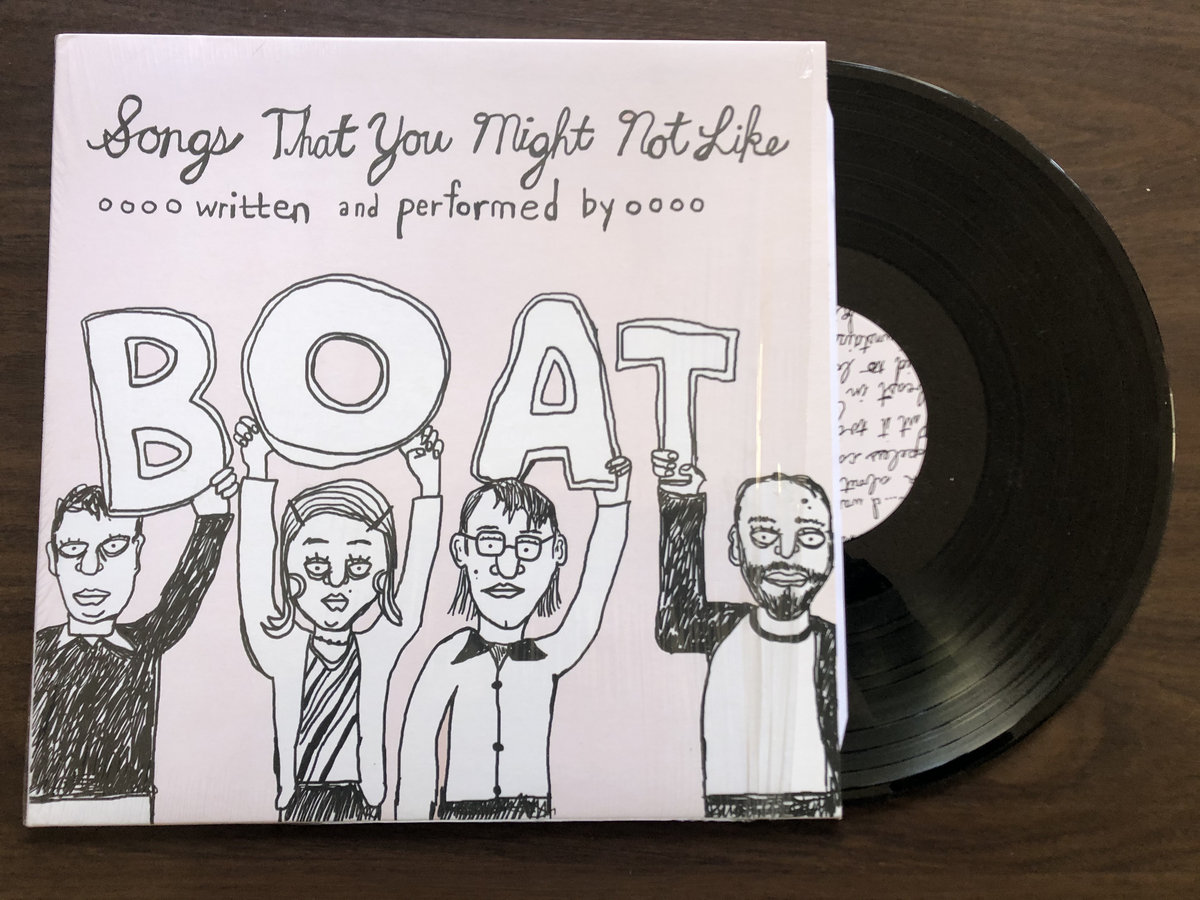 Songs That You Might Not Like
oooo written and performed by oooo
BOAT